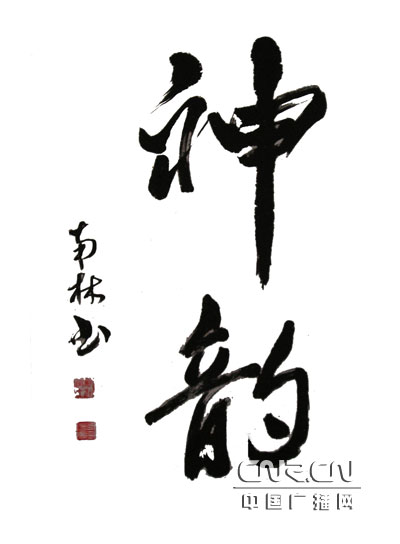 神韵
南林书
CNR.CN
中国广播网